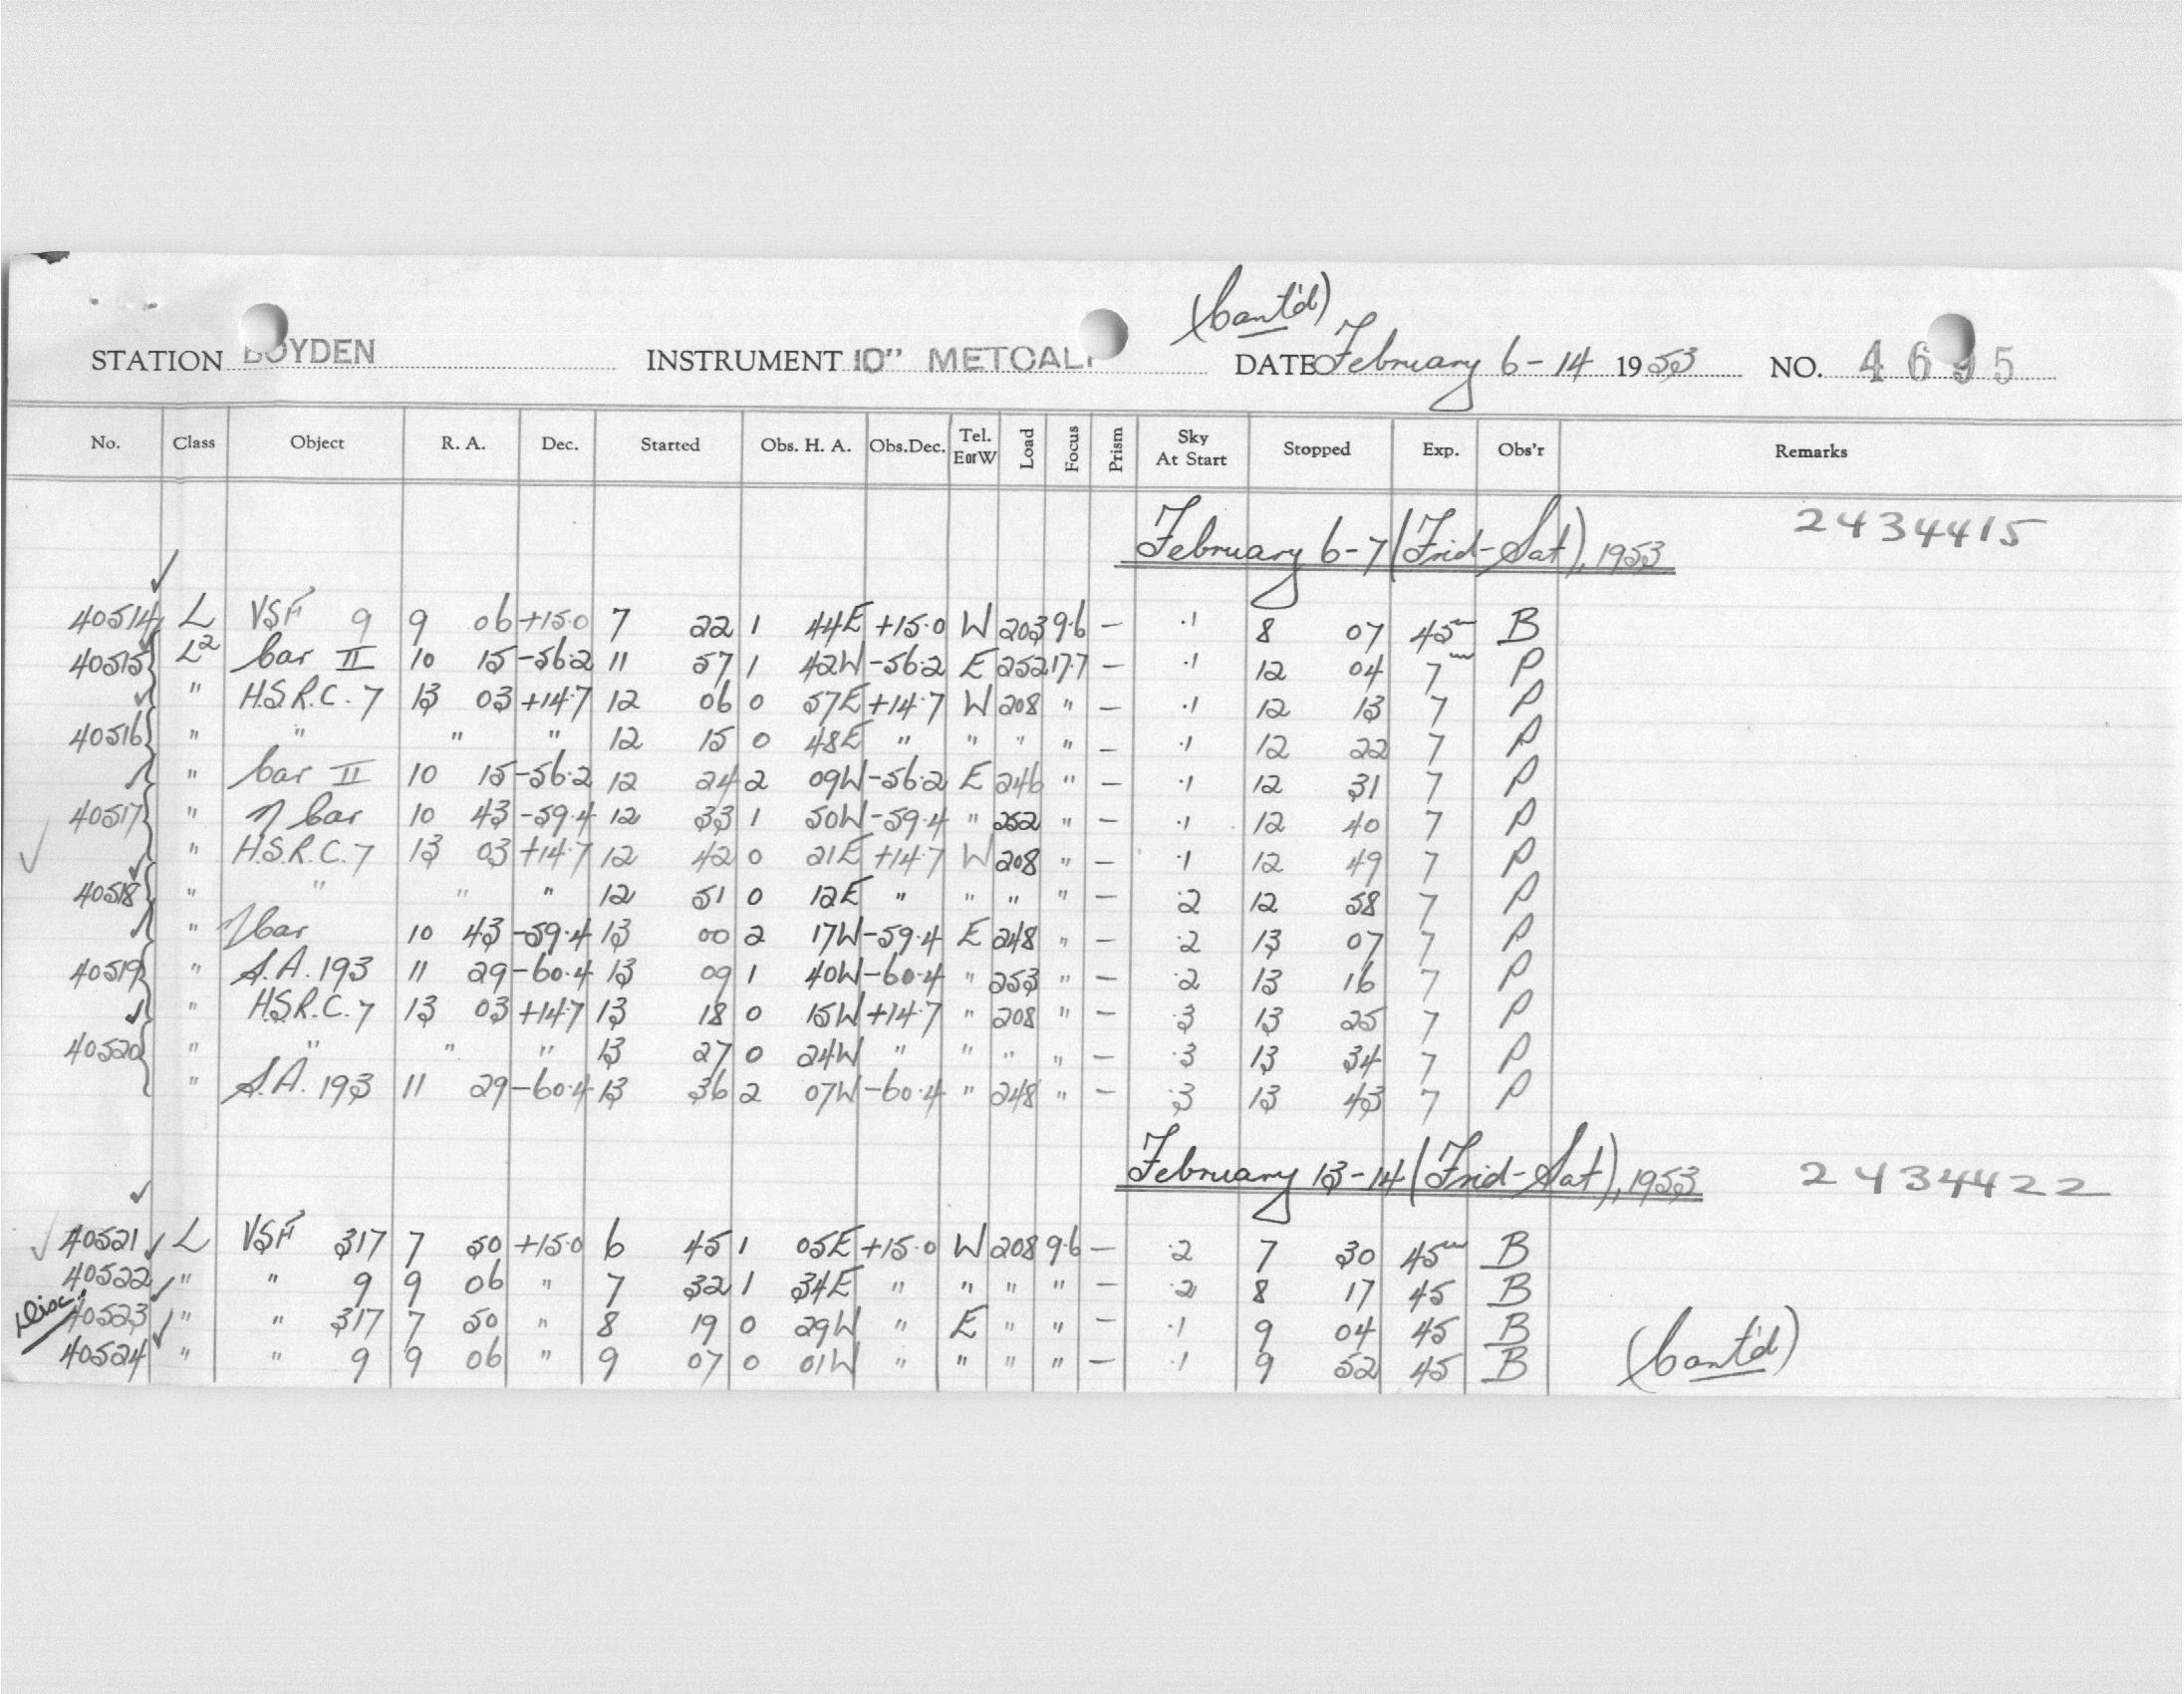 (Cont'd)
STATION BOYDEN INSTRUMENT 10" METCALF DATE February 6-14 1953 NO. 4695
No. Class Object R. A. Dec. Started Obs. H. A. Obs.Dec. Tel. E or W Load Focus Prism Sky At Start Stopped Exp. Obs'r Remarks
February 6-7 (Frid-Sat), 1953 2434415
40514 L VSF 9 9 06 +15.0 7 22 1 44E +15.0 W 203 9.6 — .1 8 07 45m B
40515 L2 Car II 10 15 -56.2 11 57 1 42W -56.2 E 252 17.7 — .1 12 04 7m P
" H.S.R.C. 7 13 03 +14.7 12 06 0 57E +14.7 W 208 " — .1 12 13 7 P
40516 " " " " 12 15 0 48E " " " " — .1 12 22 7 P
" Car II 10 15 -56.2 12 24 2 09W -56.2 E 246 " — .1 12 31 7 P
40517 " η Car 10 43 -59.4 12 33 1 50W -59.4 " 252 " — .1 12 40 7 P
" H.S.R.C. 7 13 03 +14.7 12 42 0 21E +14.7 W 208 " — .1 12 49 7 P
40518 " " " " 12 51 0 12E " " " " — .2 12 58 7 P
" η Car 10 43 -59.4 13 00 2 17W -59.4 E 248 " — .2 13 07 7 P
40519 " S.A. 193 11 29 -60.4 13 09 1 40W -60.4 " 253 " — .2 13 16 7 P
" H.S.R.C. 7 13 03 +14.7 13 18 0 15W +14.7 " 208 " — .3 13 25 7 P
40520 " " " " 13 27 0 24W " " " " — .3 13 34 7 P
" S.A. 193 11 29 -60.4 13 36 2 07W -60.4 " 248 " — .3 13 43 7 P
February 13-14 (Frid-Sat), 1953 2434422
40521 L VSF 317 7 50 +15.0 6 45 1 05E +15.0 W 208 9.6 — .2 7 30 45m B
40522 " " 9 9 06 " 7 32 1 34E " " " " — .2 8 17 45 B
Disc. 40523 " " 317 7 50 " 8 19 0 29W " E " " — .1 9 04 45 B
40524 " " 9 9 06 " 9 07 0 01W " " " " — .1 9 52 45 B
(Cont'd)